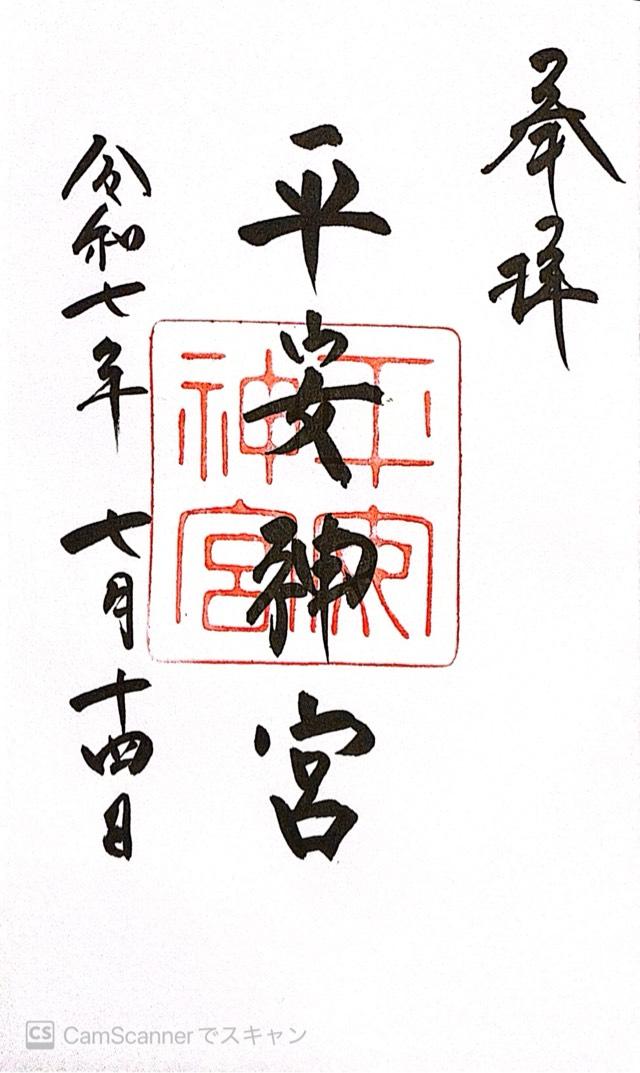 奉拝
平安神宮
平安神宮
令和七年 七月十四日
CS CamScannerでスキャン